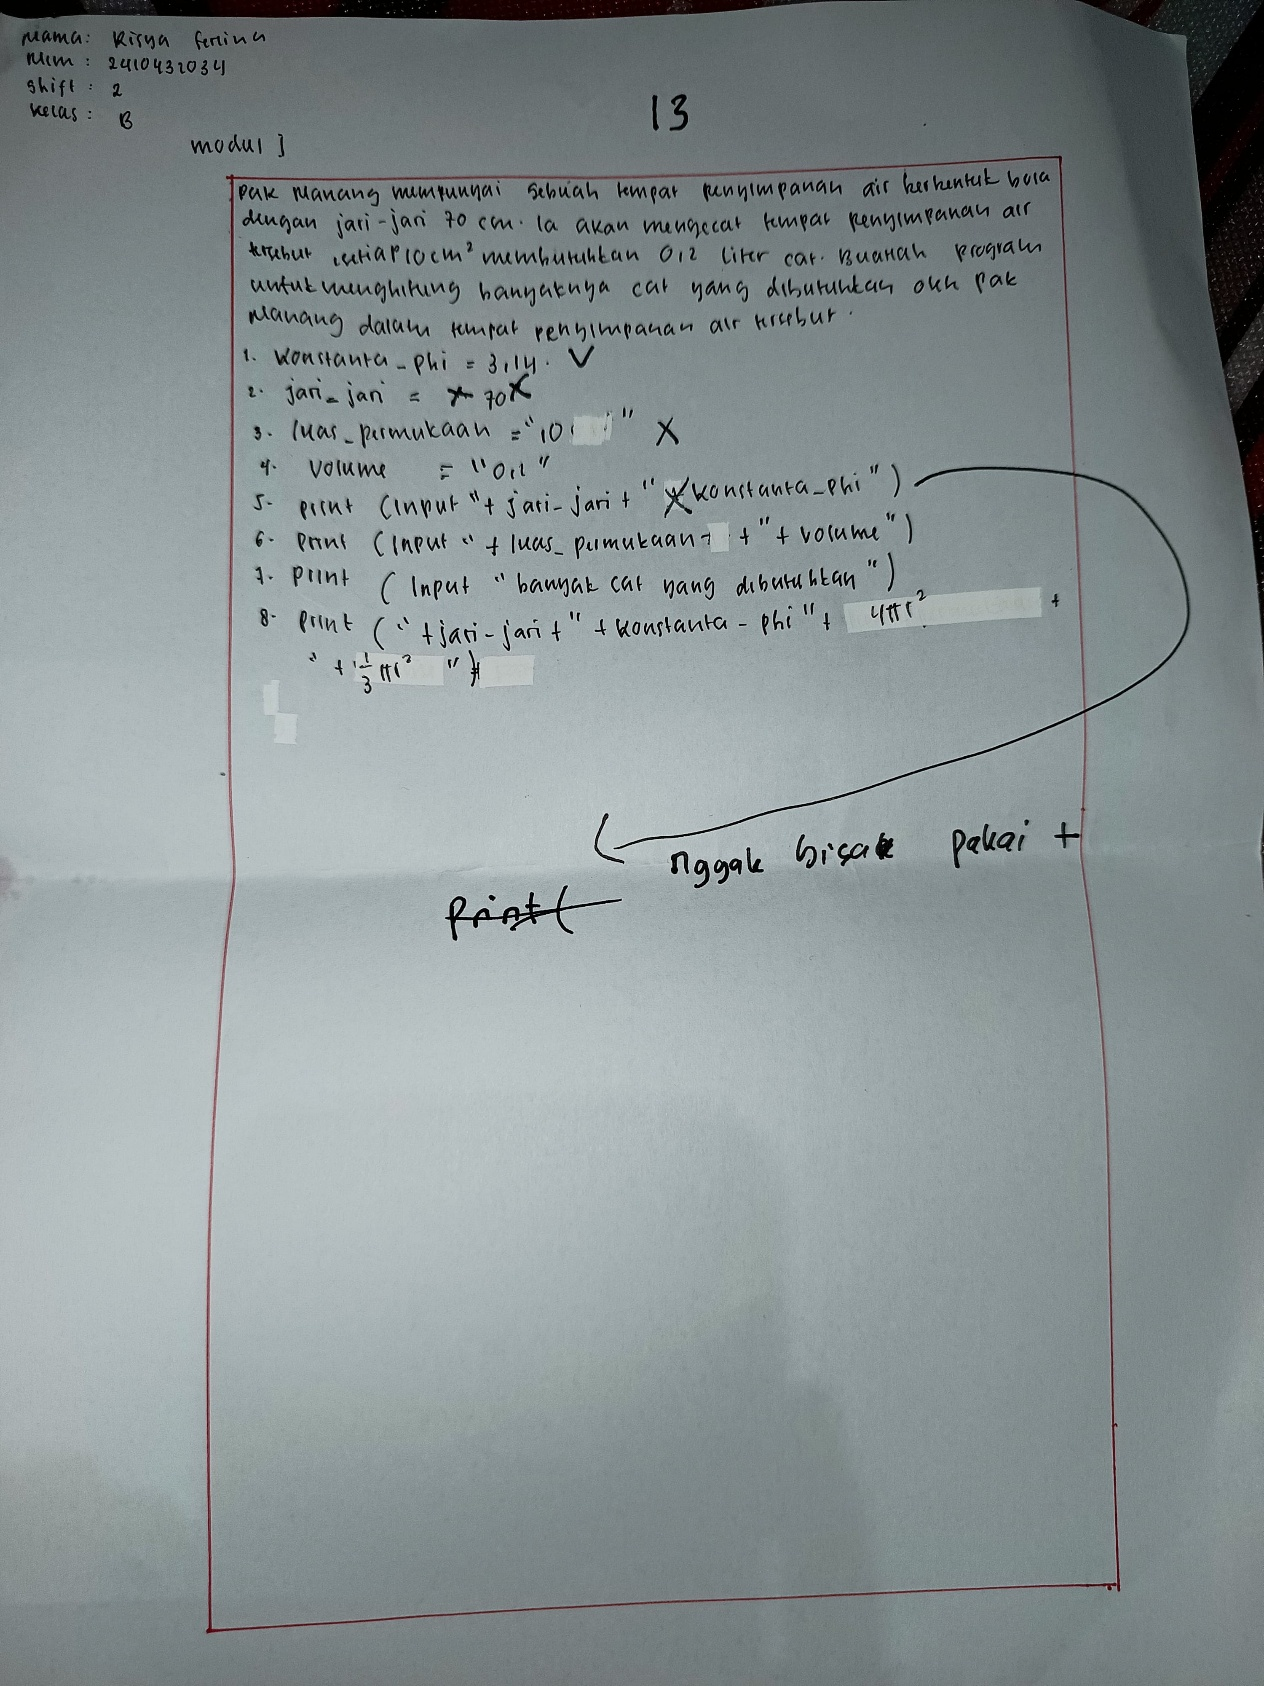 Nama: Risya fertina
Nim : 2410432034
Shift : 2
Kelas : B
13
modul 1
Pak Manang mempunyai sebuah tempat penyimpanan air berbentuk bola
dengan jari-jari 70 cm. Ia akan mengecat tempat penyimpanan air
tersebut, setiap 10 cm² membutuhkan 0,2 liter cat. Buatlah program
untuk menghitung banyaknya cat yang dibutuhkan oleh Pak
Manang dalam tempat penyimpanan air tersebut.
1. Konstanta_phi = 3,14. V
2. jari_jari = 70 X
3. luas_permukaan = "10 " X
4. volume = "0,2"
5. print (input "+ jari-jari + " konstanta_phi")
6. print (input " + luas_permukaan + + " + volume")
7. print (Input " banyak cat yang dibutuhkan ")
8. print (" + jari-jari + " + konstanta - phi " + 4πr² +
" + 1/3 πr² ")
nggak bisa pakai +
print(